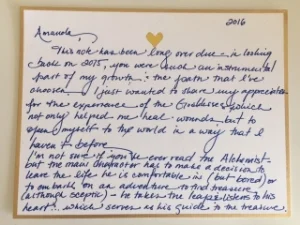 2016
Amanda,
This note has been long over due. in looking
back on 2015, you were such an instrumental
part of my growth & the path that I've
chosen. I just wanted to share my appreciation
for the experience of the Goddesses which
not only helped me heal wounds but to
open myself to the world in a way that I
haven't before.
I'm not sure if you've ever read the Alchemist -
but the main character has to make a decision to
leave the life he is comfortable in (but bored) or
to embark on an adventure to find treasure
(although sceptic) - he takes the leap & listens to his
heart... which serves as his guide to the treasure.